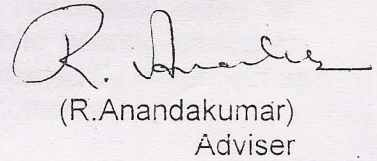 R. Anandku
(R.Anandakumar)
Adviser